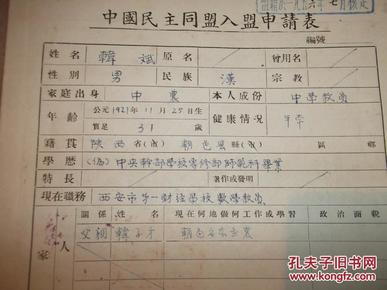 中國民主同盟入盟申請表
編號
姓名 韓斌 原名 曾用名
性別 男 民族 漢 宗教
家庭出身 中農 本人成份 中學教員
年齡 公元1921年11月25日生 實足31歲 健康情況 平常
籍貫 陝西省(市) 朝邑縣(市) 區 鄉
學歷 (偽)中央幹部學校專修部師範科畢業
特長 著作或發明
現在職務 西安市第一財經學校數學教員
關係 姓名 現在何地做何工作或學習 政治面貌
父親 韓子才 朝邑
家
人
孔夫子旧书网